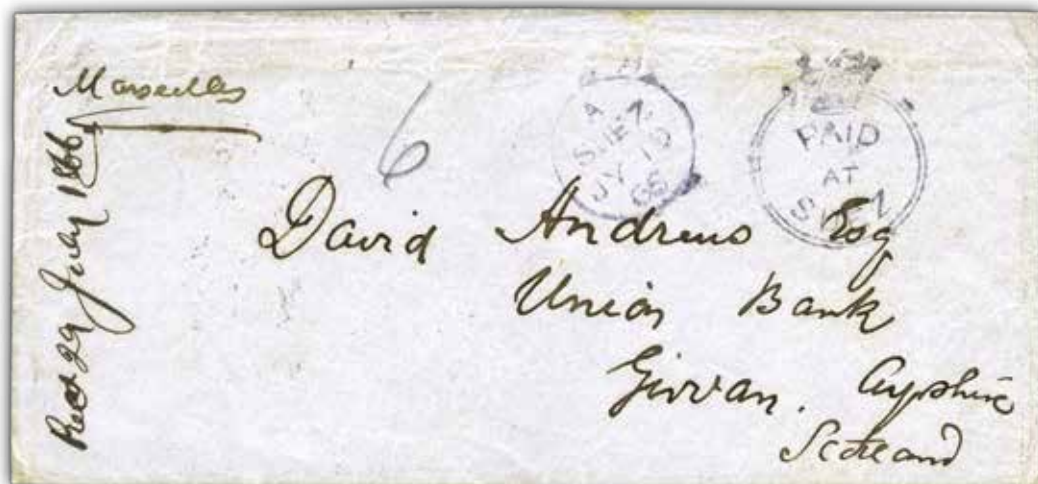 Marseilles
Recd 29 July 1866
6
A
SUEZ
JY 19
66
PAID
AT
SUEZ
David Andrews Esq
Union Bank
Girvan. Ayrshire
Scotland